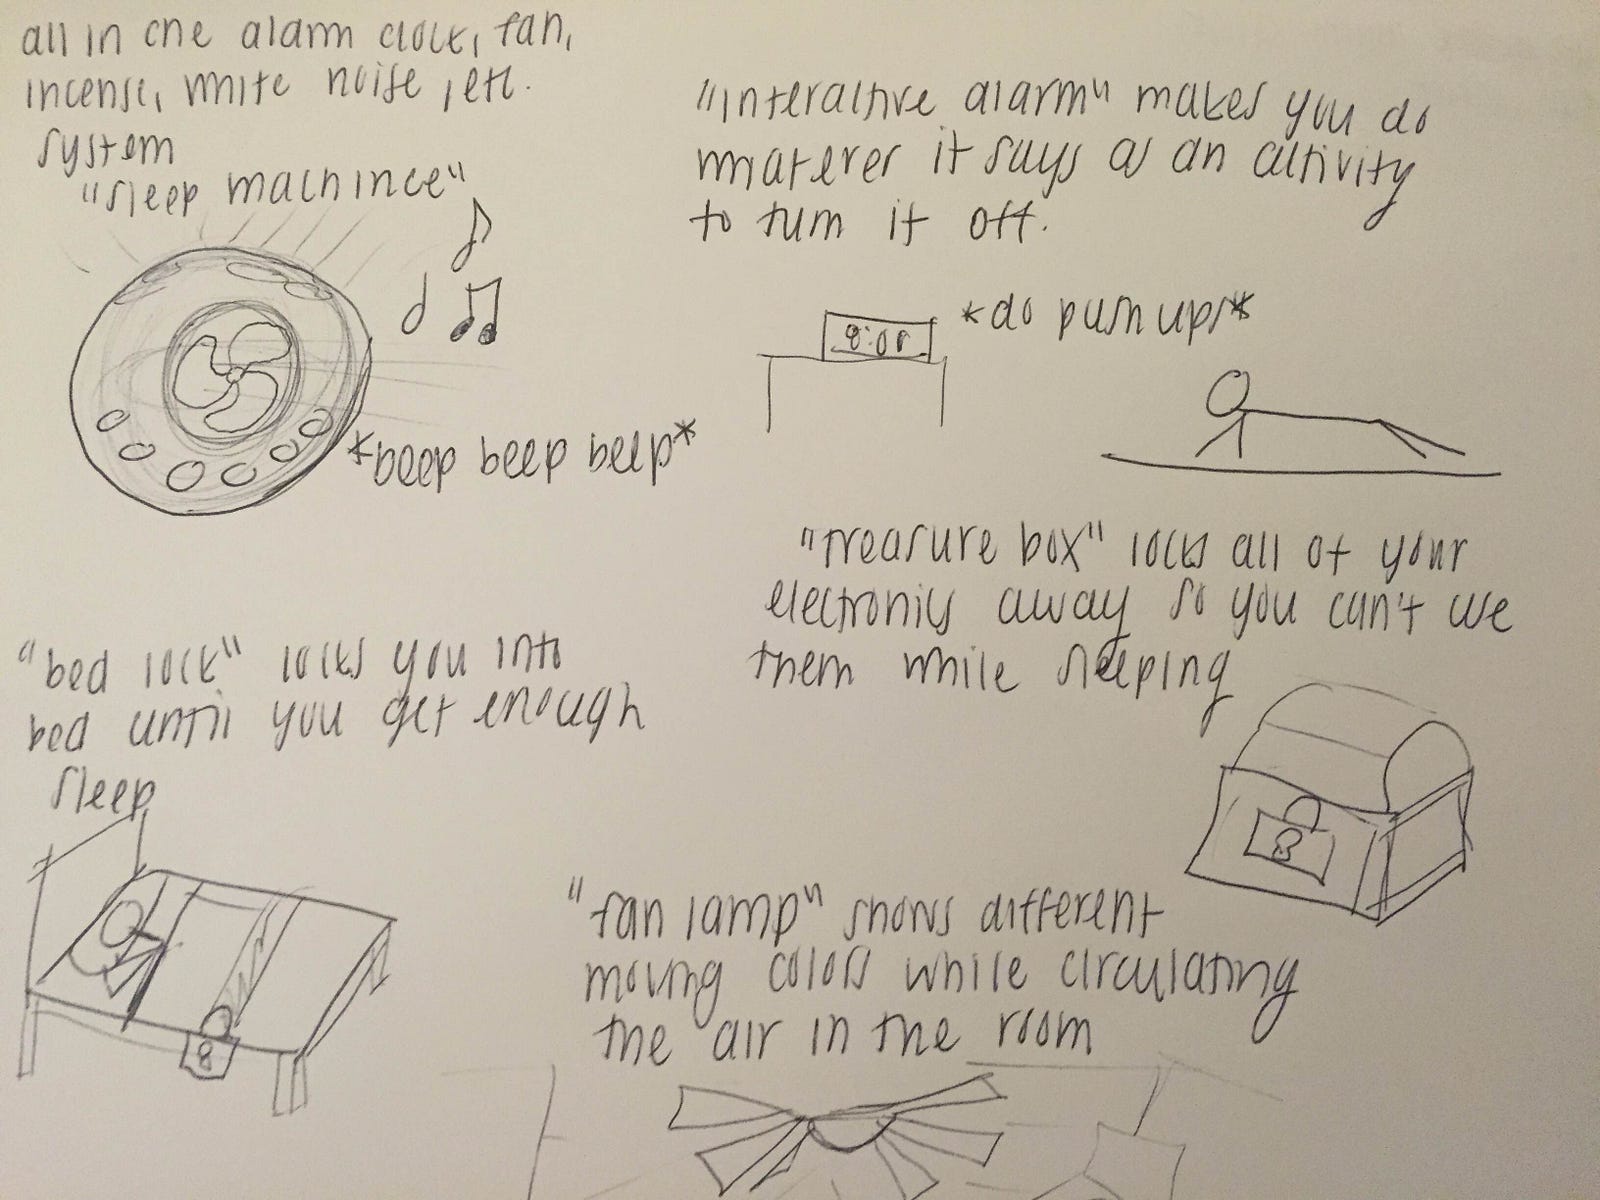 all in one alarm clock, fan,
incense, white noise, etc.
system
"sleep machince"
*beep beep beep*
"interactive alarm" makes you do
whatever it says as an activity
to turn it off.
8:00
*do push ups*
"treasure box" locks all of your
electronics away so you can't use
them while sleeping
"bed lock" locks you into
bed until you get enough
sleep
"fan lamp" shows different
moving colors while circulating
the air in the room